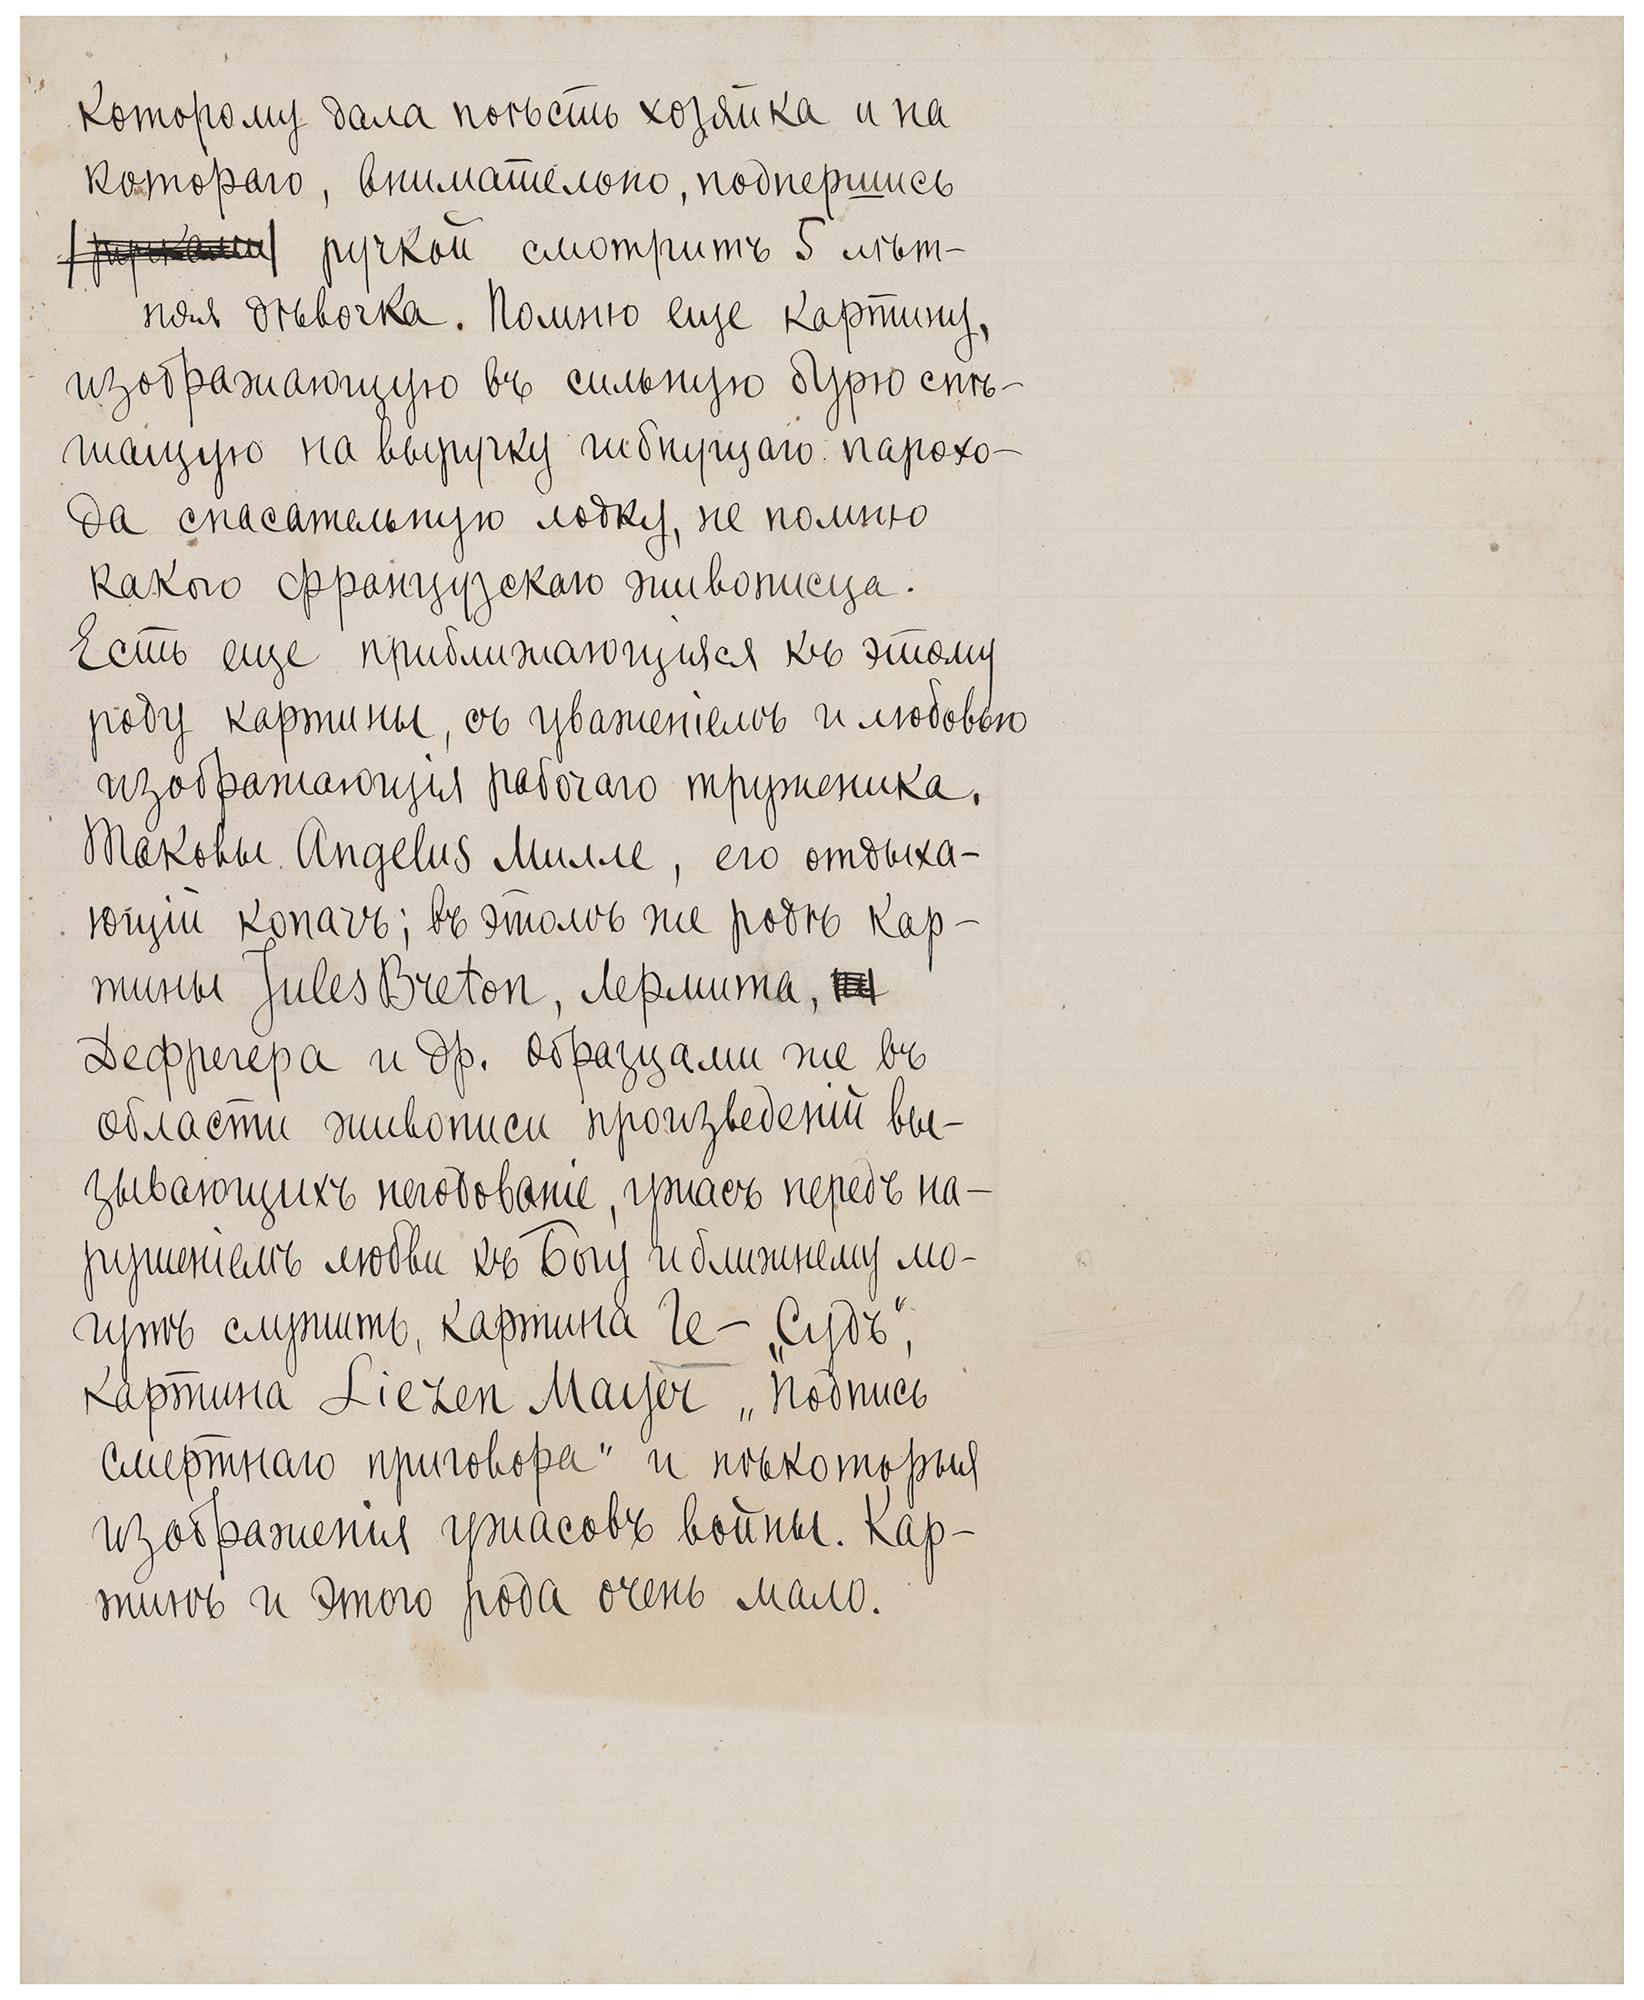 которому дала поѣсть хозяйка и на
котораго, внимательно, подпершись
ручкой смотритъ 5 лѣт-
няя дѣвочка. Помню еще картину,
изображающую въ сильную бурю спѣ-
шащую на выручку гибнущаго парохо-
да спасательную лодку, не помню
какого французскаго живописца.
Есть еще приближающіяся къ этому
роду картины, съ уваженіемъ и любовью
изображающія рабочаго труженика.
Таковы Angelus Милле, его отдыха-
ющій копачъ; въ этомъ же родѣ кар-
тины Jules Breton, Лермита,
Дефрегера и др. образцами же въ
области живописи произведеній вы-
зывающихъ негодованіе, ужасъ передъ на-
рушеніемъ любви къ Богу и ближнему мо-
гутъ служить, картина Ге- „Судъ",
картина Liezen Mayer „Подпись
смертнаго приговора" и нѣкоторыя
изображенія ужасовъ войны. Кар-
тинъ и этого рода очень мало.